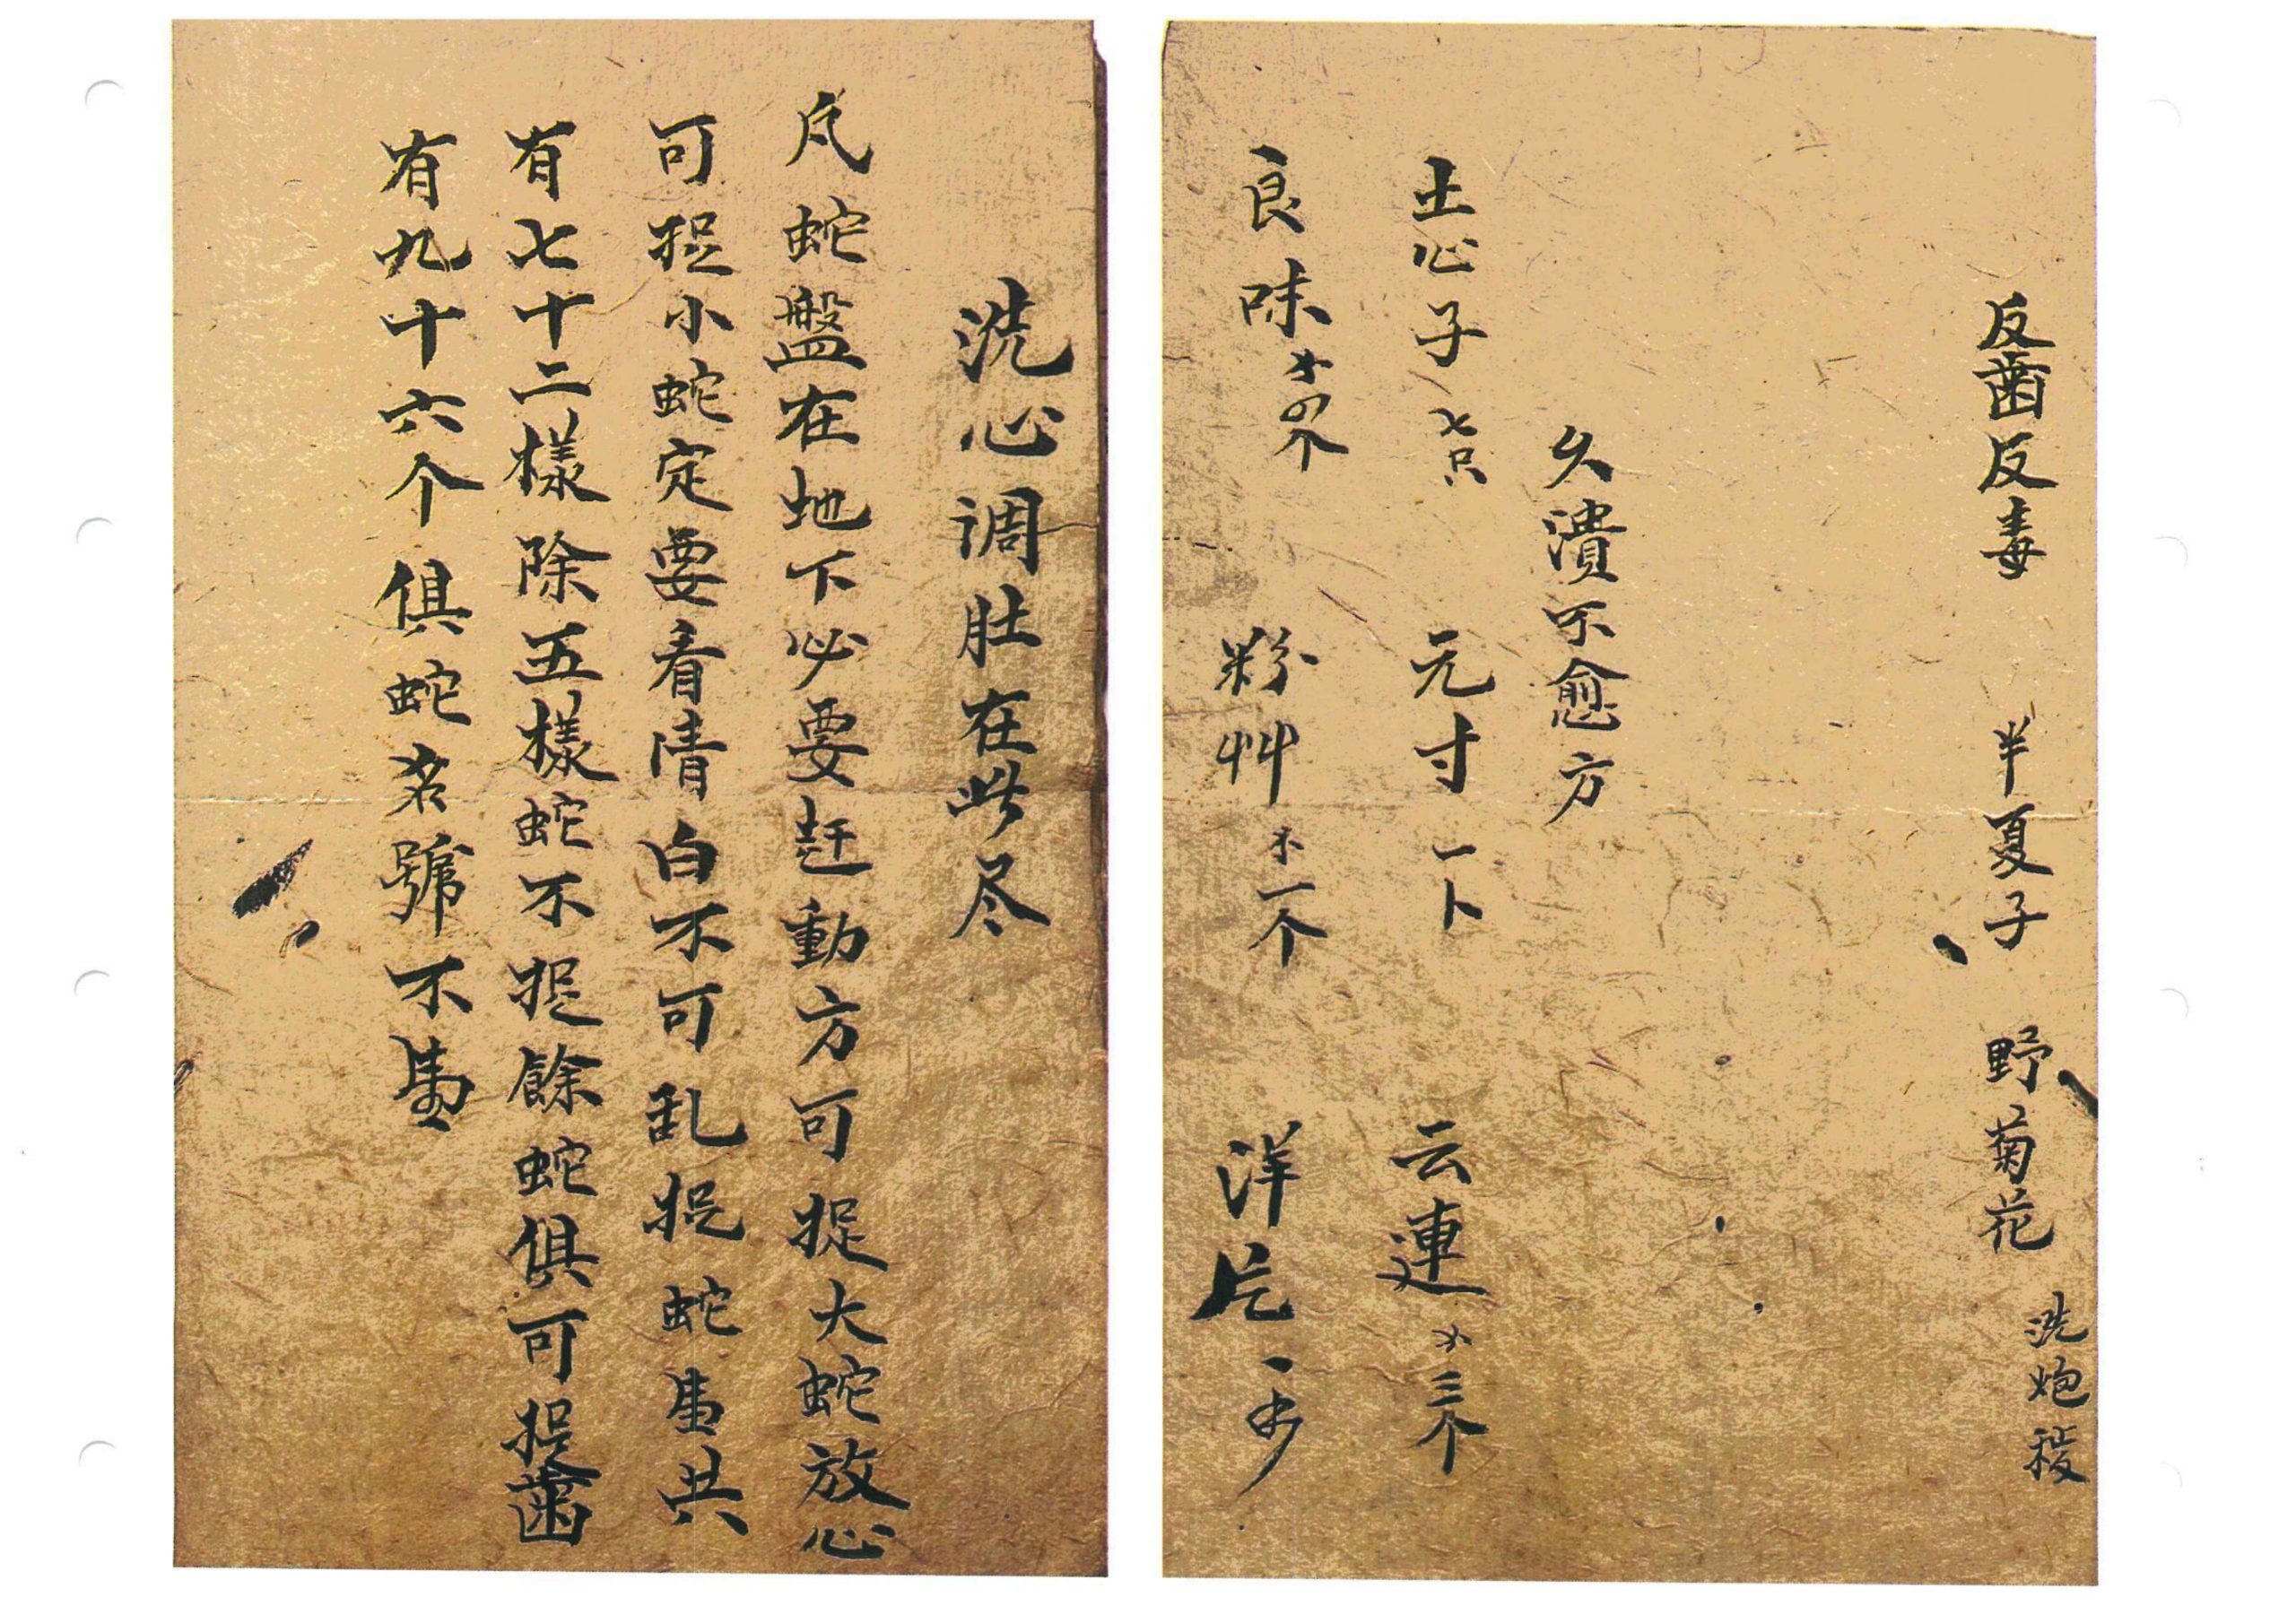 反齒反毒 半夏子 野菊花 洗炮
久潰不愈方
土心子 七只 元寸一卜 云連 三个
良味 四个 粉艸 一个 洋片一
洗心调肚在此尽
凡蛇盤在地下必要赶動方可捉大蛇放心
可捉小蛇定要看清白不可乱捉蛇 共
有七十二樣除五樣蛇不捉餘蛇俱可捉齒
有九十六个俱蛇名號不